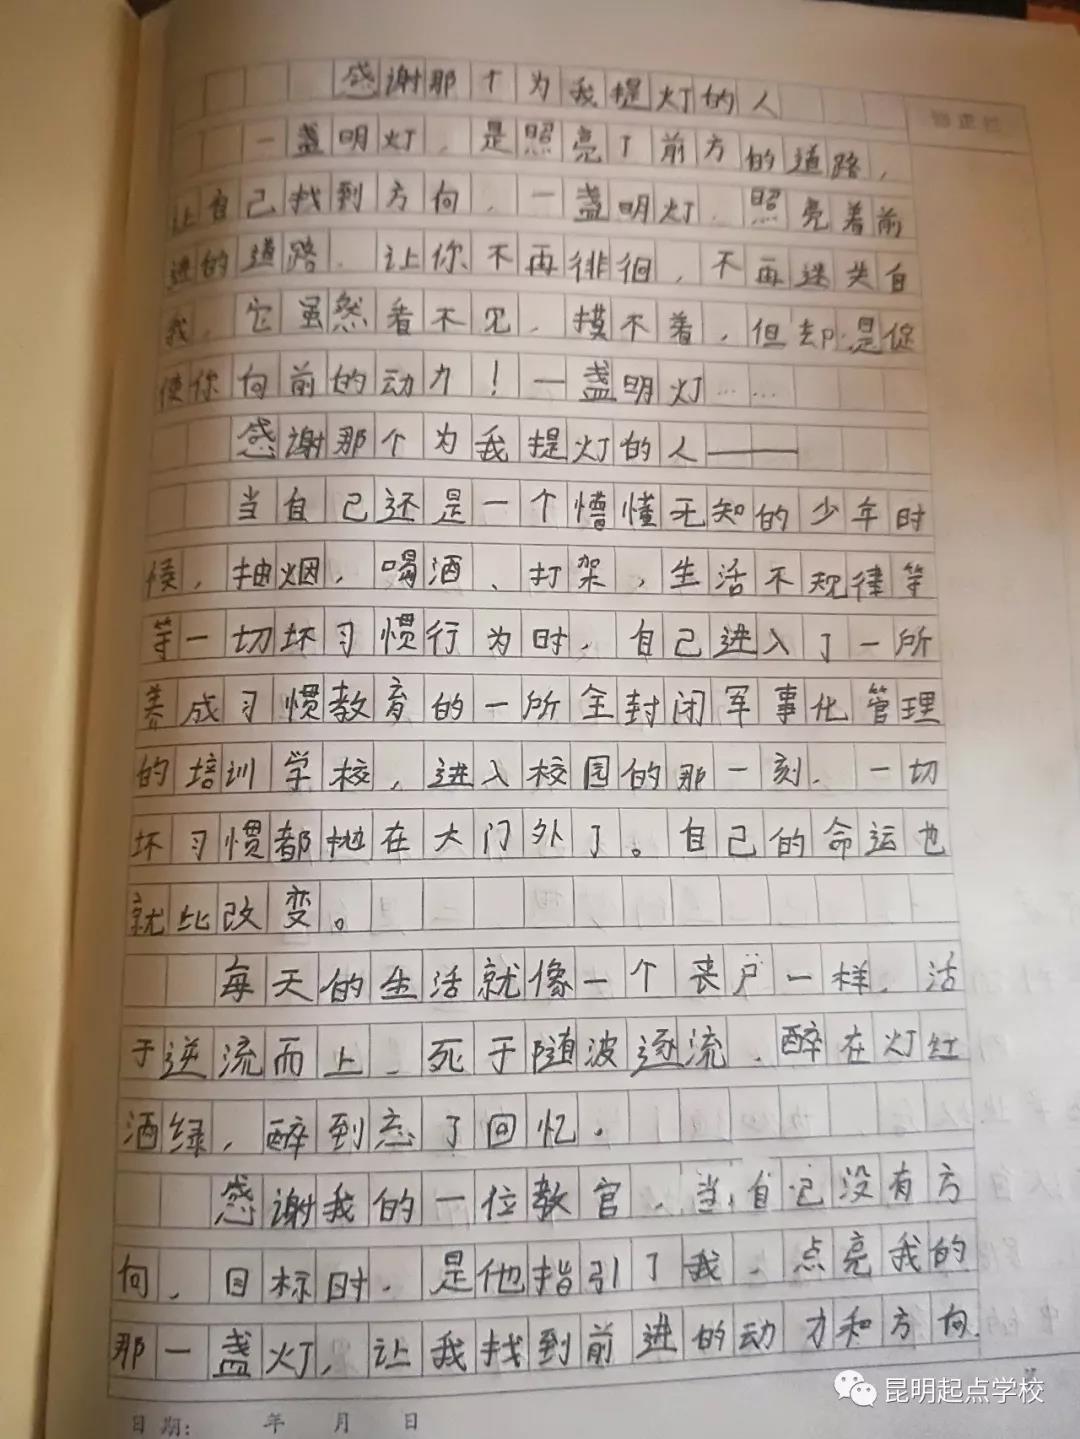 感谢那个为我提灯的人
一盏明灯，是照亮了前方的道路，
让自己找到方向，一盏明灯，照亮着前
进的道路，让你不再徘徊，不再迷失自
我，它虽然看不见，摸不着，但却是促
使你向前的动力！一盏明灯……
感谢那个为我提灯的人——
当自己还是一个懵懂无知的少年时
候，抽烟，喝酒、打架，生活不规律等
等一切坏习惯行为时，自己进入了一所
养成习惯教育的一所全封闭军事化管理
的培训学校，进入校园的那一刻，一切
坏习惯都抛在大门外了。自己的命运也
就此改变。
每天的生活就像一个丧尸一样，活
于逆流而上，死于随波逐流，醉在灯红
酒绿，醉到忘了回忆．
感谢我的一位教官，当自记没有方
向，目标时，是他指引了我，点亮我的
那一盏灯，让我找到前进的动力和方向．
日期： 年 月 日
昆明起点学校